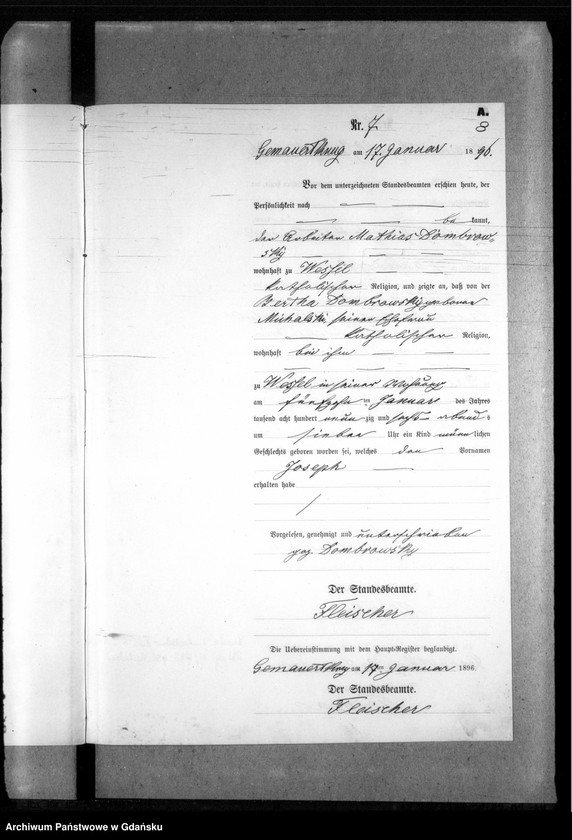 A.
8
Nr. 7
Gemauert Krug am 17. Januar 1896.
Vor dem unterzeichneten Standesbeamten erschien heute, der
Persönlichkeit nach
bekannt,
der Arbeiter Mathias Dombrow-
sky
wohnhaft zu Weßel
katholischer Religion, und zeigte an, daß von der
Bertha Dombrowsky geborene
Michalski seiner Ehefrau
katholischer Religion,
wohnhaft bei ihm
zu Weßel in seiner Wohnung
am fünfzehnten Januar des Jahres
tausend acht hundert neunzig und sechs abends
um sieben Uhr ein Kind männlichen
Geschlechts geboren worden sei, welches den Vornamen
Joseph
erhalten habe
Vorgelesen, genehmigt und unterschrieben
gez. Dombrowsky
Der Standesbeamte.
Fleischer
Die Uebereinstimmung mit dem Haupt-Register beglaubigt.
Gemauert Krug am 17ten Januar 1896.
Der Standesbeamte.
Fleischer
Archiwum Państwowe w Gdańsku